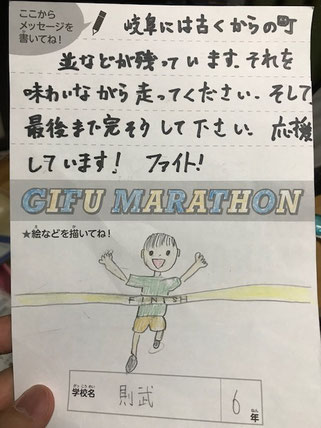 ここから
メッセージを
書いてね!
岐阜には古くからの町
並などが残っています。それを
味わいながら走ってください。そして
最後まで完そうして下さい。応援
しています! ファイト!
GIFU MARATHON
★絵などを描いてね!
FINISH
学校名 則武 6年